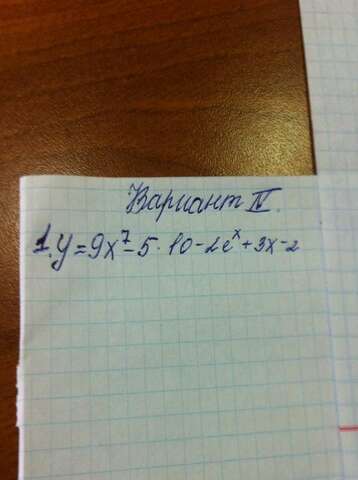 Вариант IV.
1. y = 9x⁷ - 5 · 10 - 2e^x + 3x - 2